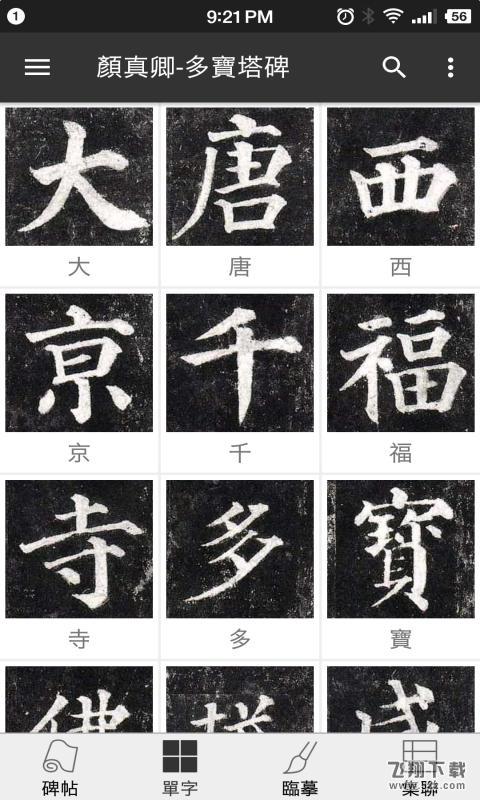 1 9:21 PM 56
顏真卿-多寶塔碑
大 唐 西
大 唐 西
京 千 福
京 千 福
寺 多 寶
寺 多 寶
佛 塔 感
碑帖 單字 臨摹 集聯
飞翔下载
www.52z.com